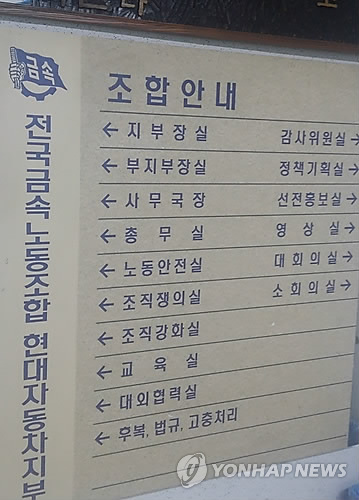 금속
전국금속노동조합 현대자동차지부
조합안내
← 지부장실 감사위원실 →
← 부지부장실 정책기획실 →
← 사무국장 선전홍보실 →
← 총무실 영상실 →
← 노동안전실 대회의실 →
← 조직쟁의실 소회의실 →
← 조직강화실
← 교육실
← 대외협력실
← 후복, 법규, 고충처리
YONHAP NEWS